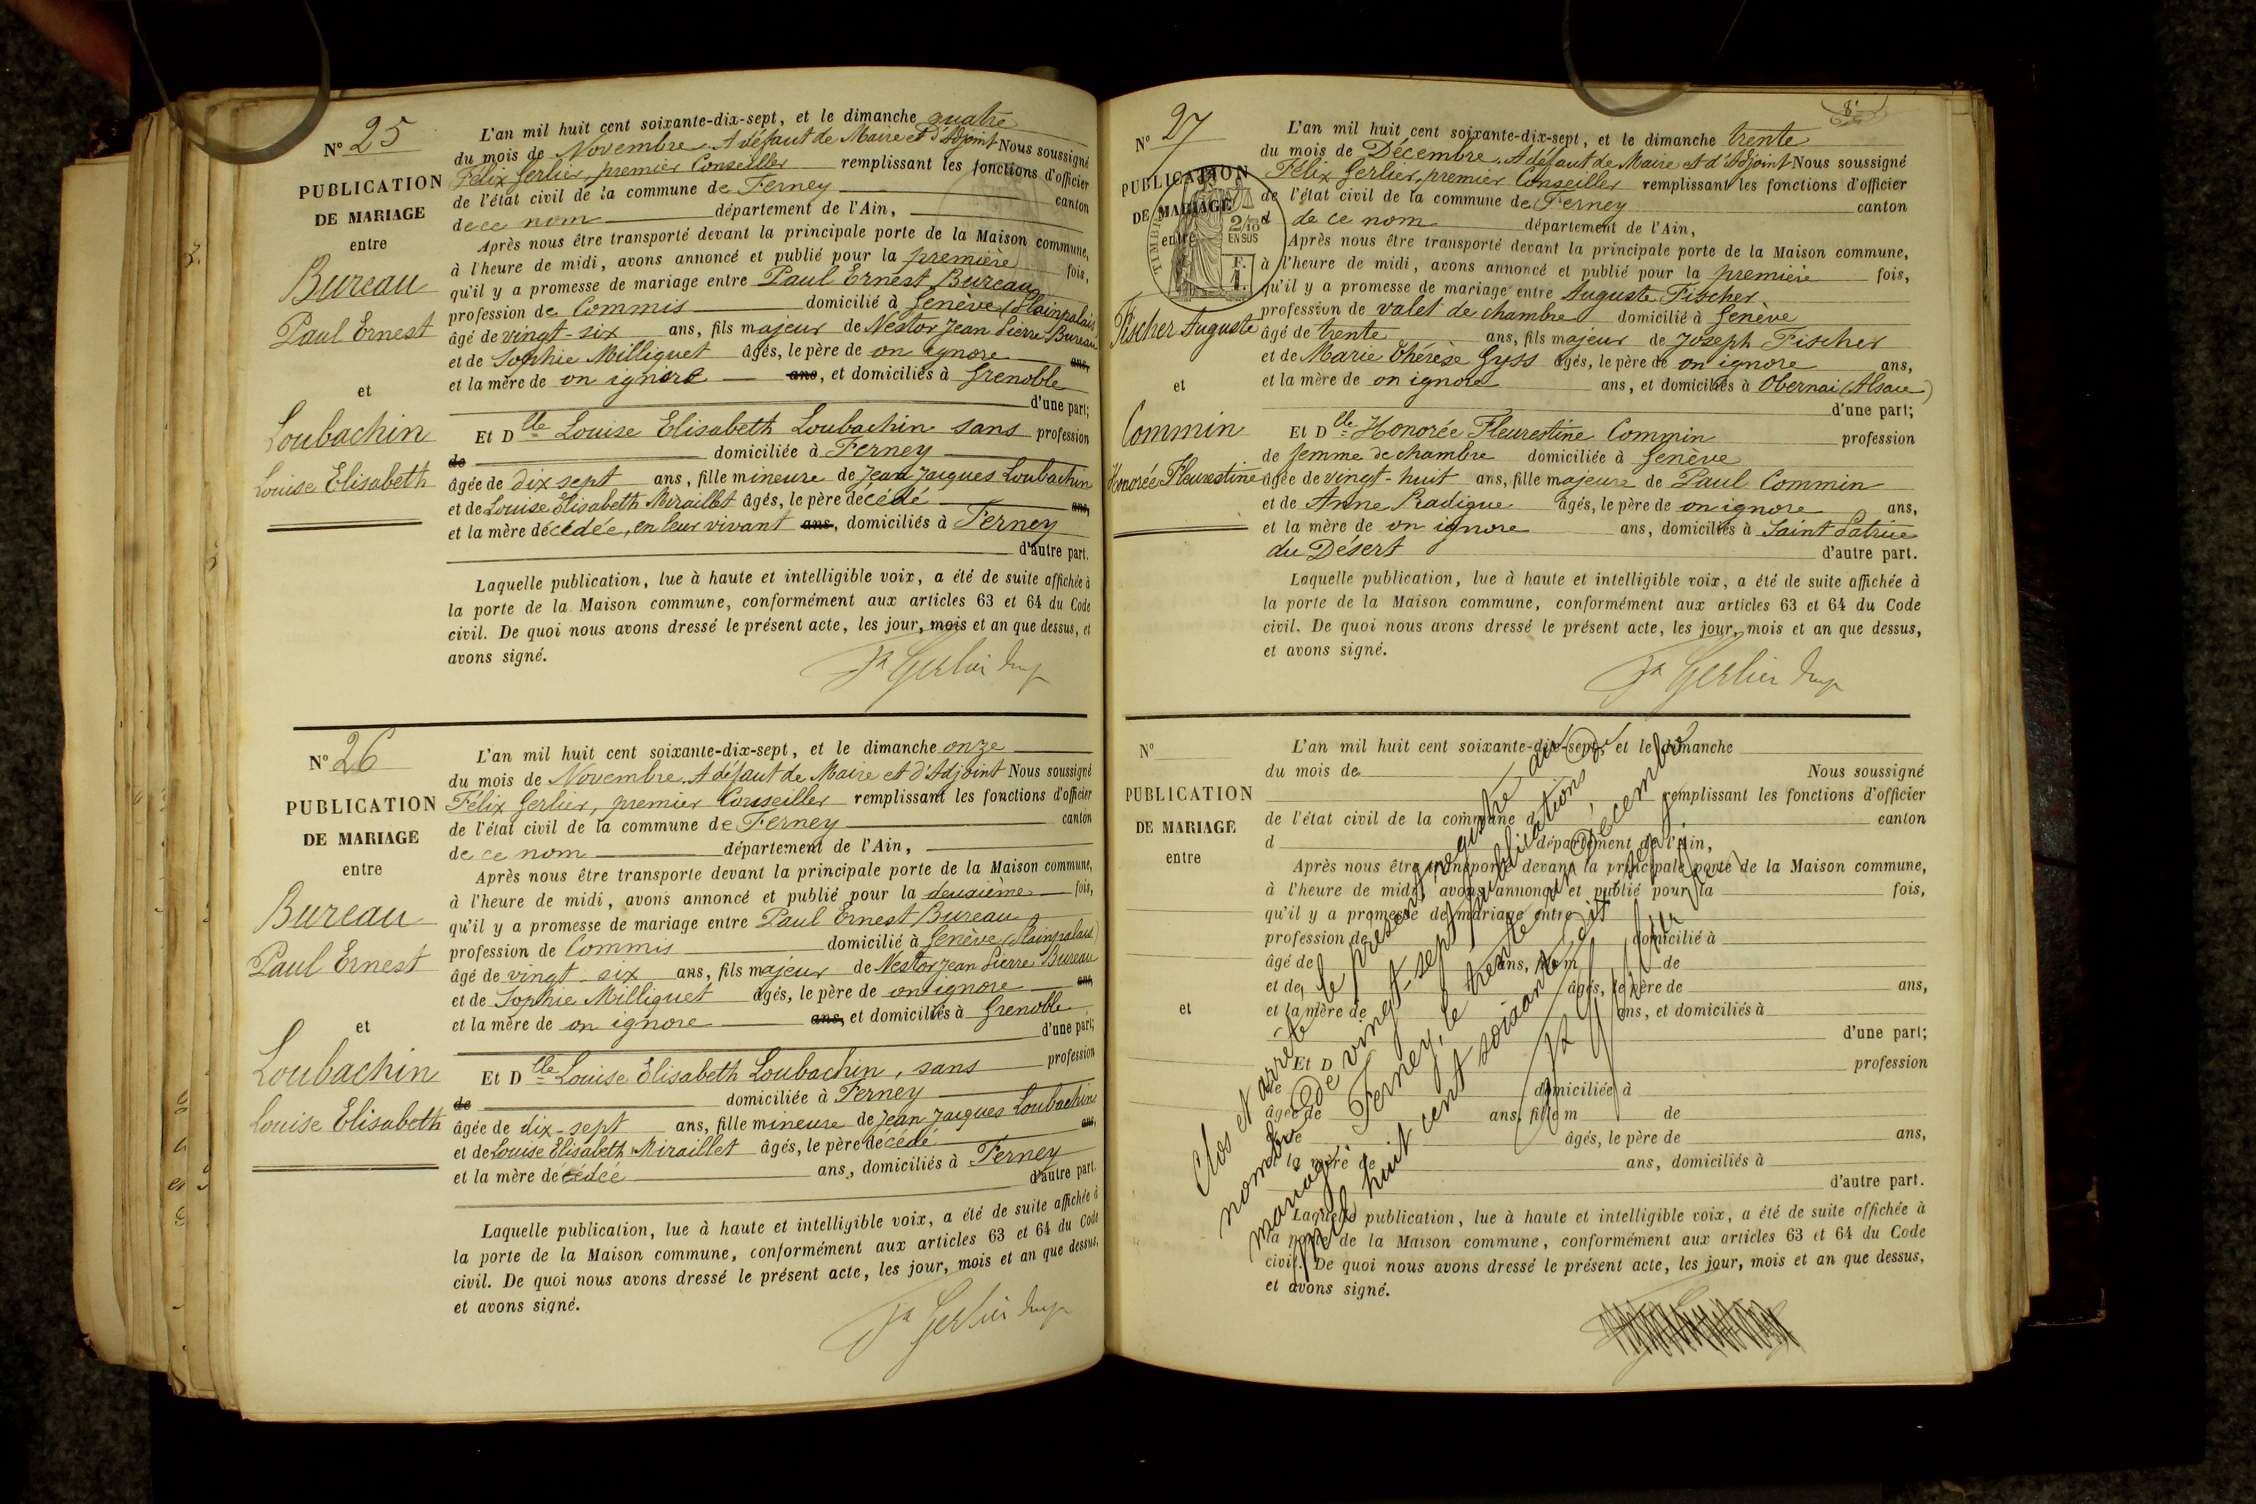 Nº 25
PUBLICATION
DE MARIAGE
entre
Bureau
Paul Ernest
et
Loubachin
Louise Elisabeth
L'an mil huit cent soixante-dix-sept, et le dimanche quatre
du mois de Novembre. A défaut de Maire et d'Adjoint Nous soussigné
Félix Gerlier, premier Conseiller remplissant les fonctions d'officier
de l'état civil de la commune de Ferney canton
de ce nom département de l'Ain,
Après nous être transporté devant la principale porte de la Maison commune,
à l'heure de midi, avons annoncé et publié pour la première fois,
qu'il y a promesse de mariage entre Paul Ernest Bureau
profession de Commis domicilié à Genève (Plainpalais)
âgé de vingt-six ans, fils majeur de Nestor Jean Pierre Bureau
et de Sophie Milliquet âgés, le père de on ignore ans,
et la mère de on ignore ans, et domiciliés à Grenoble
d'une part;
Et Dlle Louise Elisabeth Loubachin sans profession
de domiciliée à Ferney
âgée de dix sept ans, fille mineure de Jean Jacques Loubachin
et de Louise Elisabeth Miraillet âgés, le père décédé ans,
et la mère décédée, en leur vivant ans, domiciliés à Ferney
d'autre part.
Laquelle publication, lue à haute et intelligible voix, a été de suite affichée à
la porte de la Maison commune, conformément aux articles 63 et 64 du Code
civil. De quoi nous avons dressé le présent acte, les jour, mois et an que dessus, et
avons signé.
Gerlier
Nº 26
PUBLICATION
DE MARIAGE
entre
Bureau
Paul Ernest
et
Loubachin
Louise Elisabeth
L'an mil huit cent soixante-dix-sept, et le dimanche onze
du mois de Novembre. A défaut de Maire et d'Adjoint Nous soussigné
Félix Gerlier, premier Conseiller remplissant les fonctions d'officier
de l'état civil de la commune de Ferney canton
de ce nom département de l'Ain,
Après nous être transporté devant la principale porte de la Maison commune,
à l'heure de midi, avons annoncé et publié pour la deuxième fois,
qu'il y a promesse de mariage entre Paul Ernest Bureau
profession de Commis domicilié à Genève (Plainpalais)
âgé de vingt-six ans, fils majeur de Nestor Jean Pierre Bureau
et de Sophie Milliquet âgés, le père de on ignore ans,
et la mère de on ignore ans, et domiciliés à Grenoble
d'une part;
Et Dlle Louise Elisabeth Loubachin, sans profession
de domiciliée à Ferney
âgée de dix-sept ans, fille mineure de Jean Jacques Loubachin
et de Louise Elisabeth Miraillet âgés, le père décédé ans,
et la mère décédée ans, domiciliés à Ferney
d'autre part.
Laquelle publication, lue à haute et intelligible voix, a été de suite affichée à
la porte de la Maison commune, conformément aux articles 63 et 64 du Code
civil. De quoi nous avons dressé le présent acte, les jour, mois et an que dessus,
et avons signé.
Gerlier
8
Nº 27
PUBLICATION
DE MARIAGE
entre
TIMBRE
2/10
EN SUS
Fischer Auguste
et
Commin
Honorée Fleurestine
L'an mil huit cent soixante-dix-sept, et le dimanche trente
du mois de Décembre. A défaut de Maire et d'Adjoint Nous soussigné
Félix Gerlier, premier Conseiller remplissant les fonctions d'officier
de l'état civil de la commune de Ferney canton
d de ce nom département de l'Ain,
Après nous être transporté devant la principale porte de la Maison commune,
à l'heure de midi, avons annoncé et publié pour la première fois,
qu'il y a promesse de mariage entre Auguste Fischer
profession de valet de chambre domicilié à Genève
âgé de trente ans, fils majeur de Joseph Fischer
et de Marie Thérèse Gyss âgés, le père de on ignore ans,
et la mère de on ignore ans, et domiciliés à Obernai (Alsace)
d'une part;
Et Dlle Honorée Fleurestine Commin profession
de femme de chambre domiciliée à Genève
âgée de vingt-huit ans, fille majeure de Paul Commin
et de Anne Radigue âgés, le père de on ignore ans,
et la mère de on ignore ans, domiciliés à Saint Patrice
du Désert d'autre part.
Laquelle publication, lue à haute et intelligible voix, a été de suite affichée à
la porte de la Maison commune, conformément aux articles 63 et 64 du Code
civil. De quoi nous avons dressé le présent acte, les jour, mois et an que dessus,
et avons signé.
Gerlier
Nº
PUBLICATION
DE MARIAGE
entre
et
L'an mil huit cent soixante-dix-sept, et le dimanche
du mois de Nous soussigné
remplissant les fonctions d'officier
de l'état civil de la commune d canton
d département de l'Ain,
Après nous être transporté devant la principale porte de la Maison commune,
à l'heure de midi, avons annoncé et publié pour la fois,
qu'il y a promesse de mariage entre
profession de domicilié à
âgé de ans, fils m de
et de âgés, le père de ans,
et la mère de ans, et domiciliés à
d'une part;
Et D profession
de domiciliée à
âgée de ans, fille m de
et de âgés, le père de ans,
et la mère de ans, domiciliés à
d'autre part.
Laquelle publication, lue à haute et intelligible voix, a été de suite affichée à
la porte de la Maison commune, conformément aux articles 63 et 64 du Code
civil. De quoi nous avons dressé le présent acte, les jour, mois et an que dessus,
et avons signé.
Clos et arrêté le présent registre au
nombre de vingt-sept publications de
mariage. Ferney, le trente un Décembre
mil huit cent soixante dix sept.